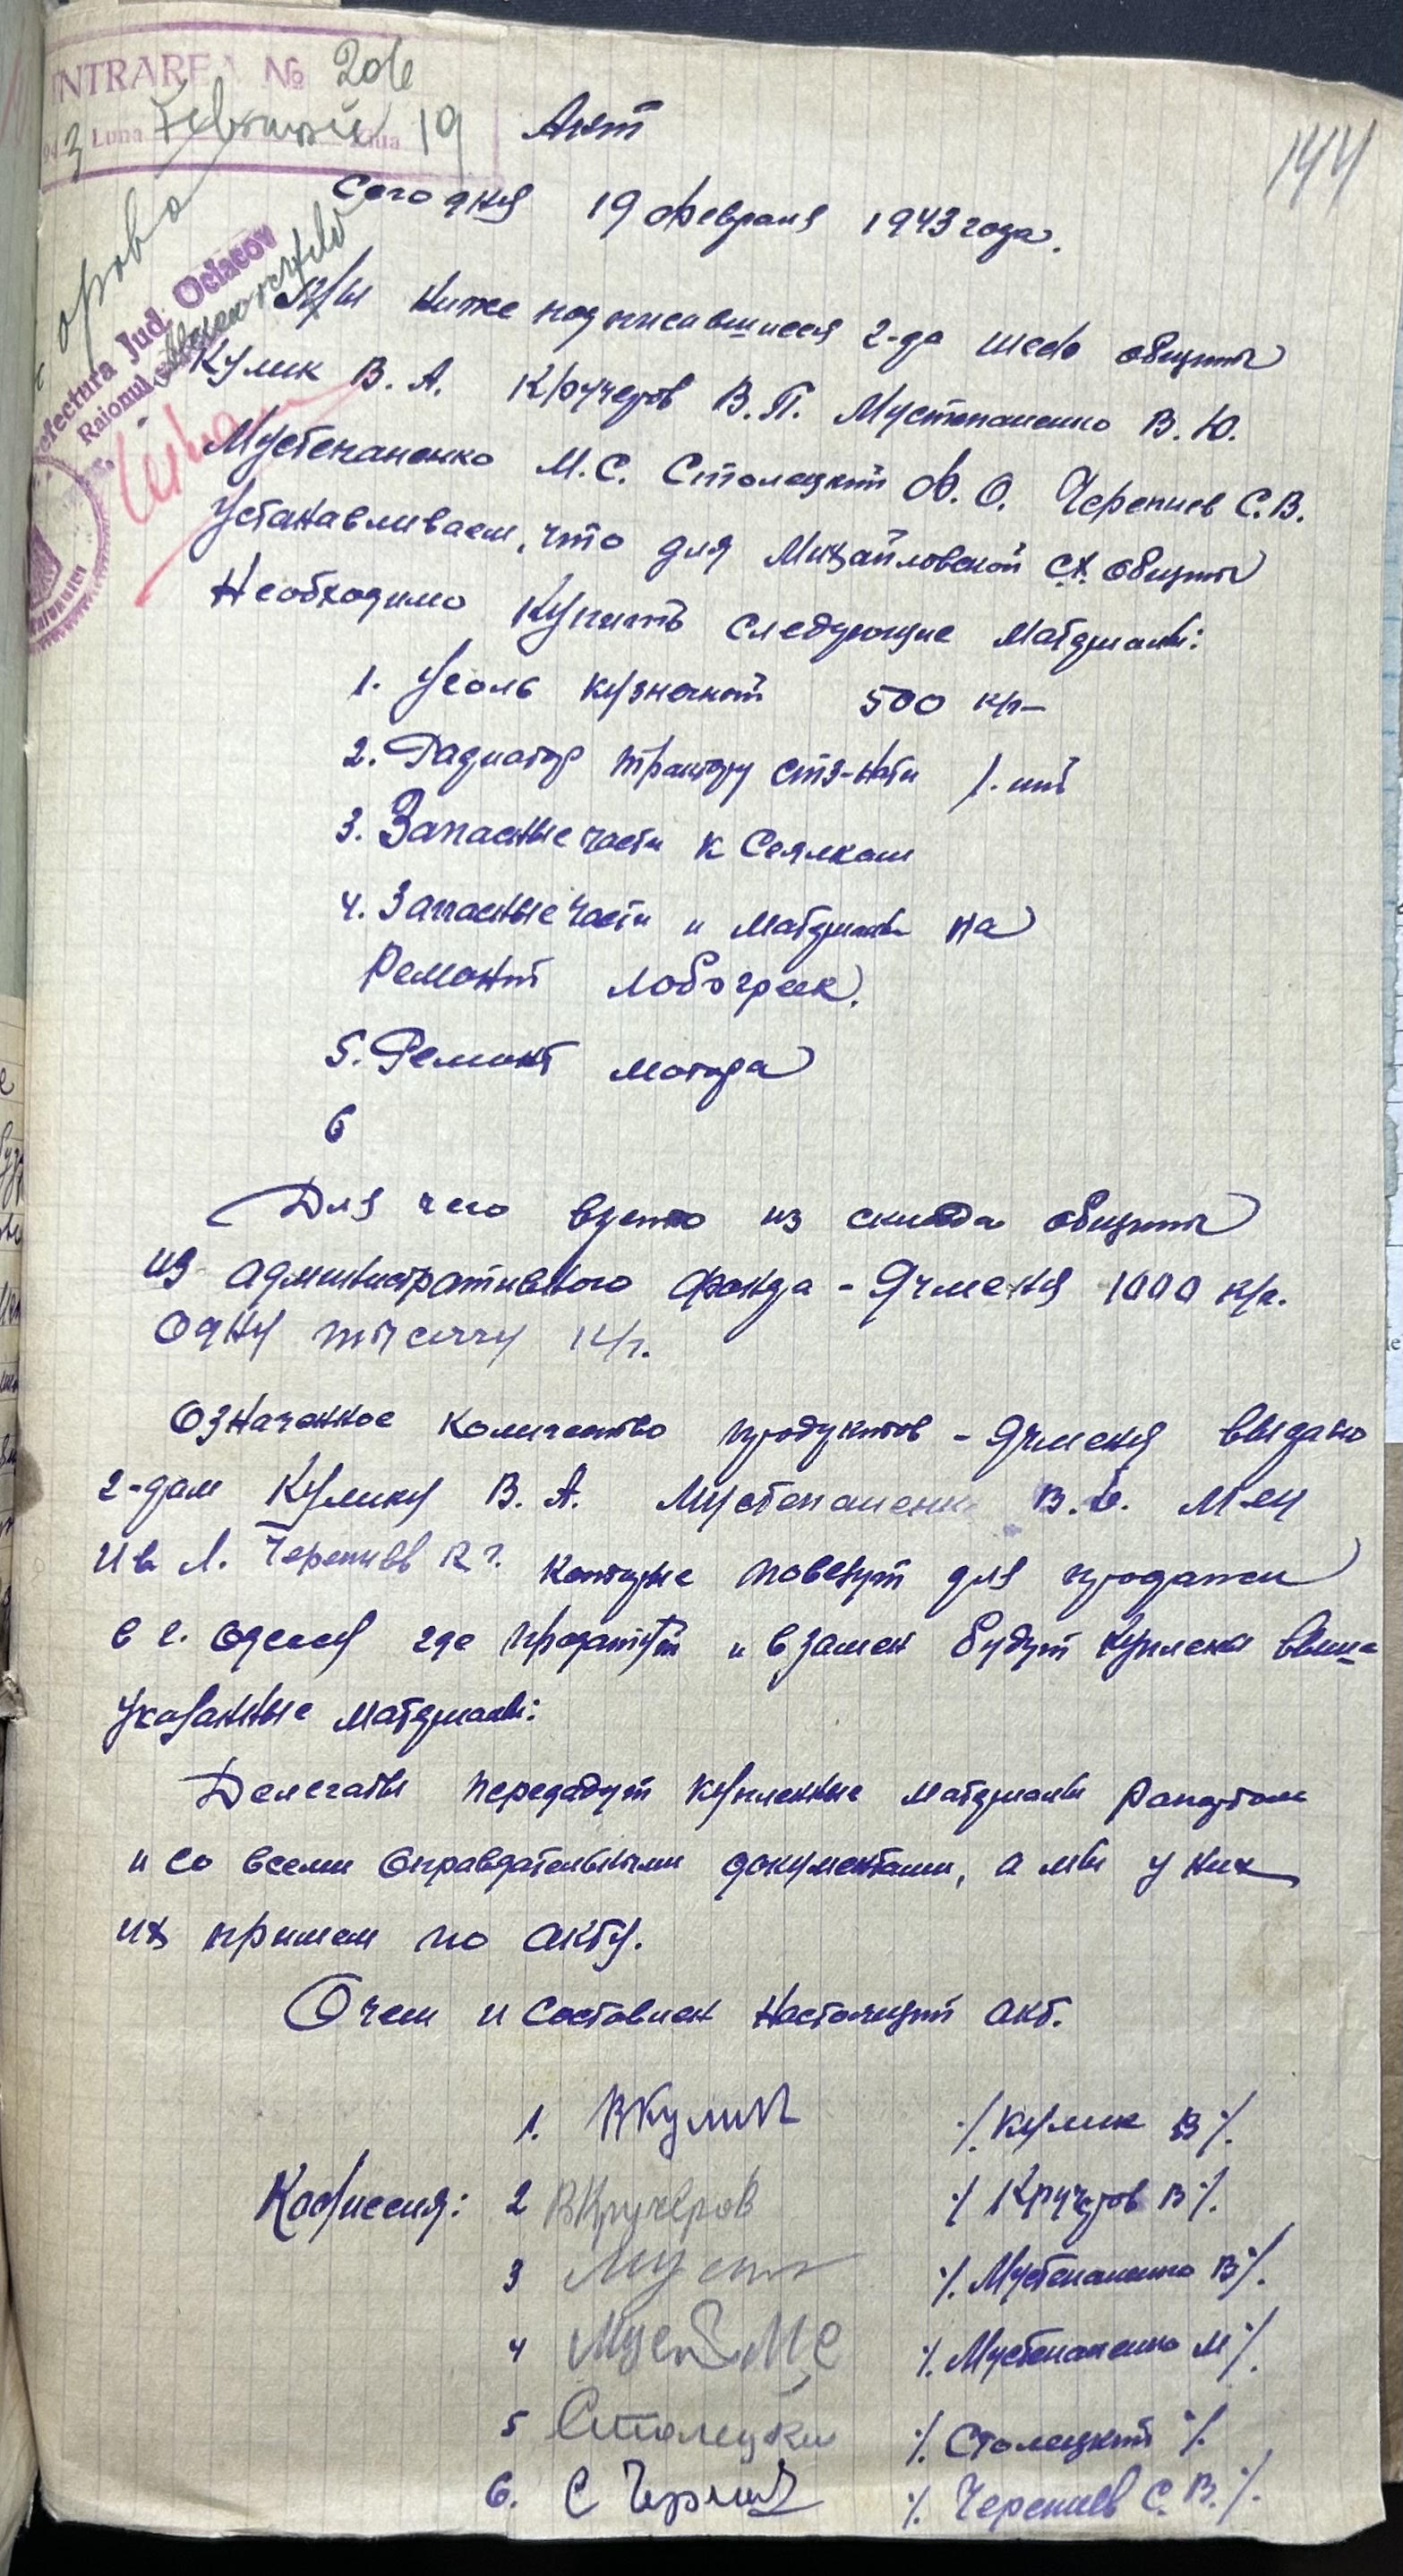 INTRAREA № 206
943 Luna Februarie Ziua 19
144
Prefectura Jud. Oceacov
Raionul
Акт
Сегодня 19 февраля 1943 года.
Мы ниже подписавшиеся 2-да шеф общины
Кулик В. А. Кручеров В. П. Мустепаненко В. Ю.
Мустепаненко М. С. Столецкий Ф. О. Черепиев С. В.
Устанавливаем, что для Михайловской с.х. общины
Необходимо купить следующие материалы:
1. Уголь кузнечный 500 к/г
2. Радиатор трактору СТЗ-Нати 1. шт
3. Запасные части к Сеялкам
4. Запасные части и материалы на
Ремонт лобогреек.
5. Ремонт мотора
6
Для чего взято из склада общины
из административного фонда - Ячменя 1000 к/г.
Одну тысячу к/г.
Означенное количество продуктов - Ячменя выдано
2-дам Кулику В. А. Мустепаненк В.
Л. Черепиев которые повезут для продажи
в г. Одессу где продатут и взамен будут куплены выше
указанные материалы:
Делегаты передадут купленные материалы рапортом
и со всеми оправдательными документами, а мы у них
их примем по акту.
О чем и составлен настоящий акт.
1. ВКулик /. Кулик В /.
Комиссия: 2 ВКручеров /. Кручеров В /.
3 Муст /. Мустепаненко В /.
4 Муст М С /. Мустепаненко М /.
5 Столецки /. Столецкий /.
6. С Череп /. Черепиев С. В. /.